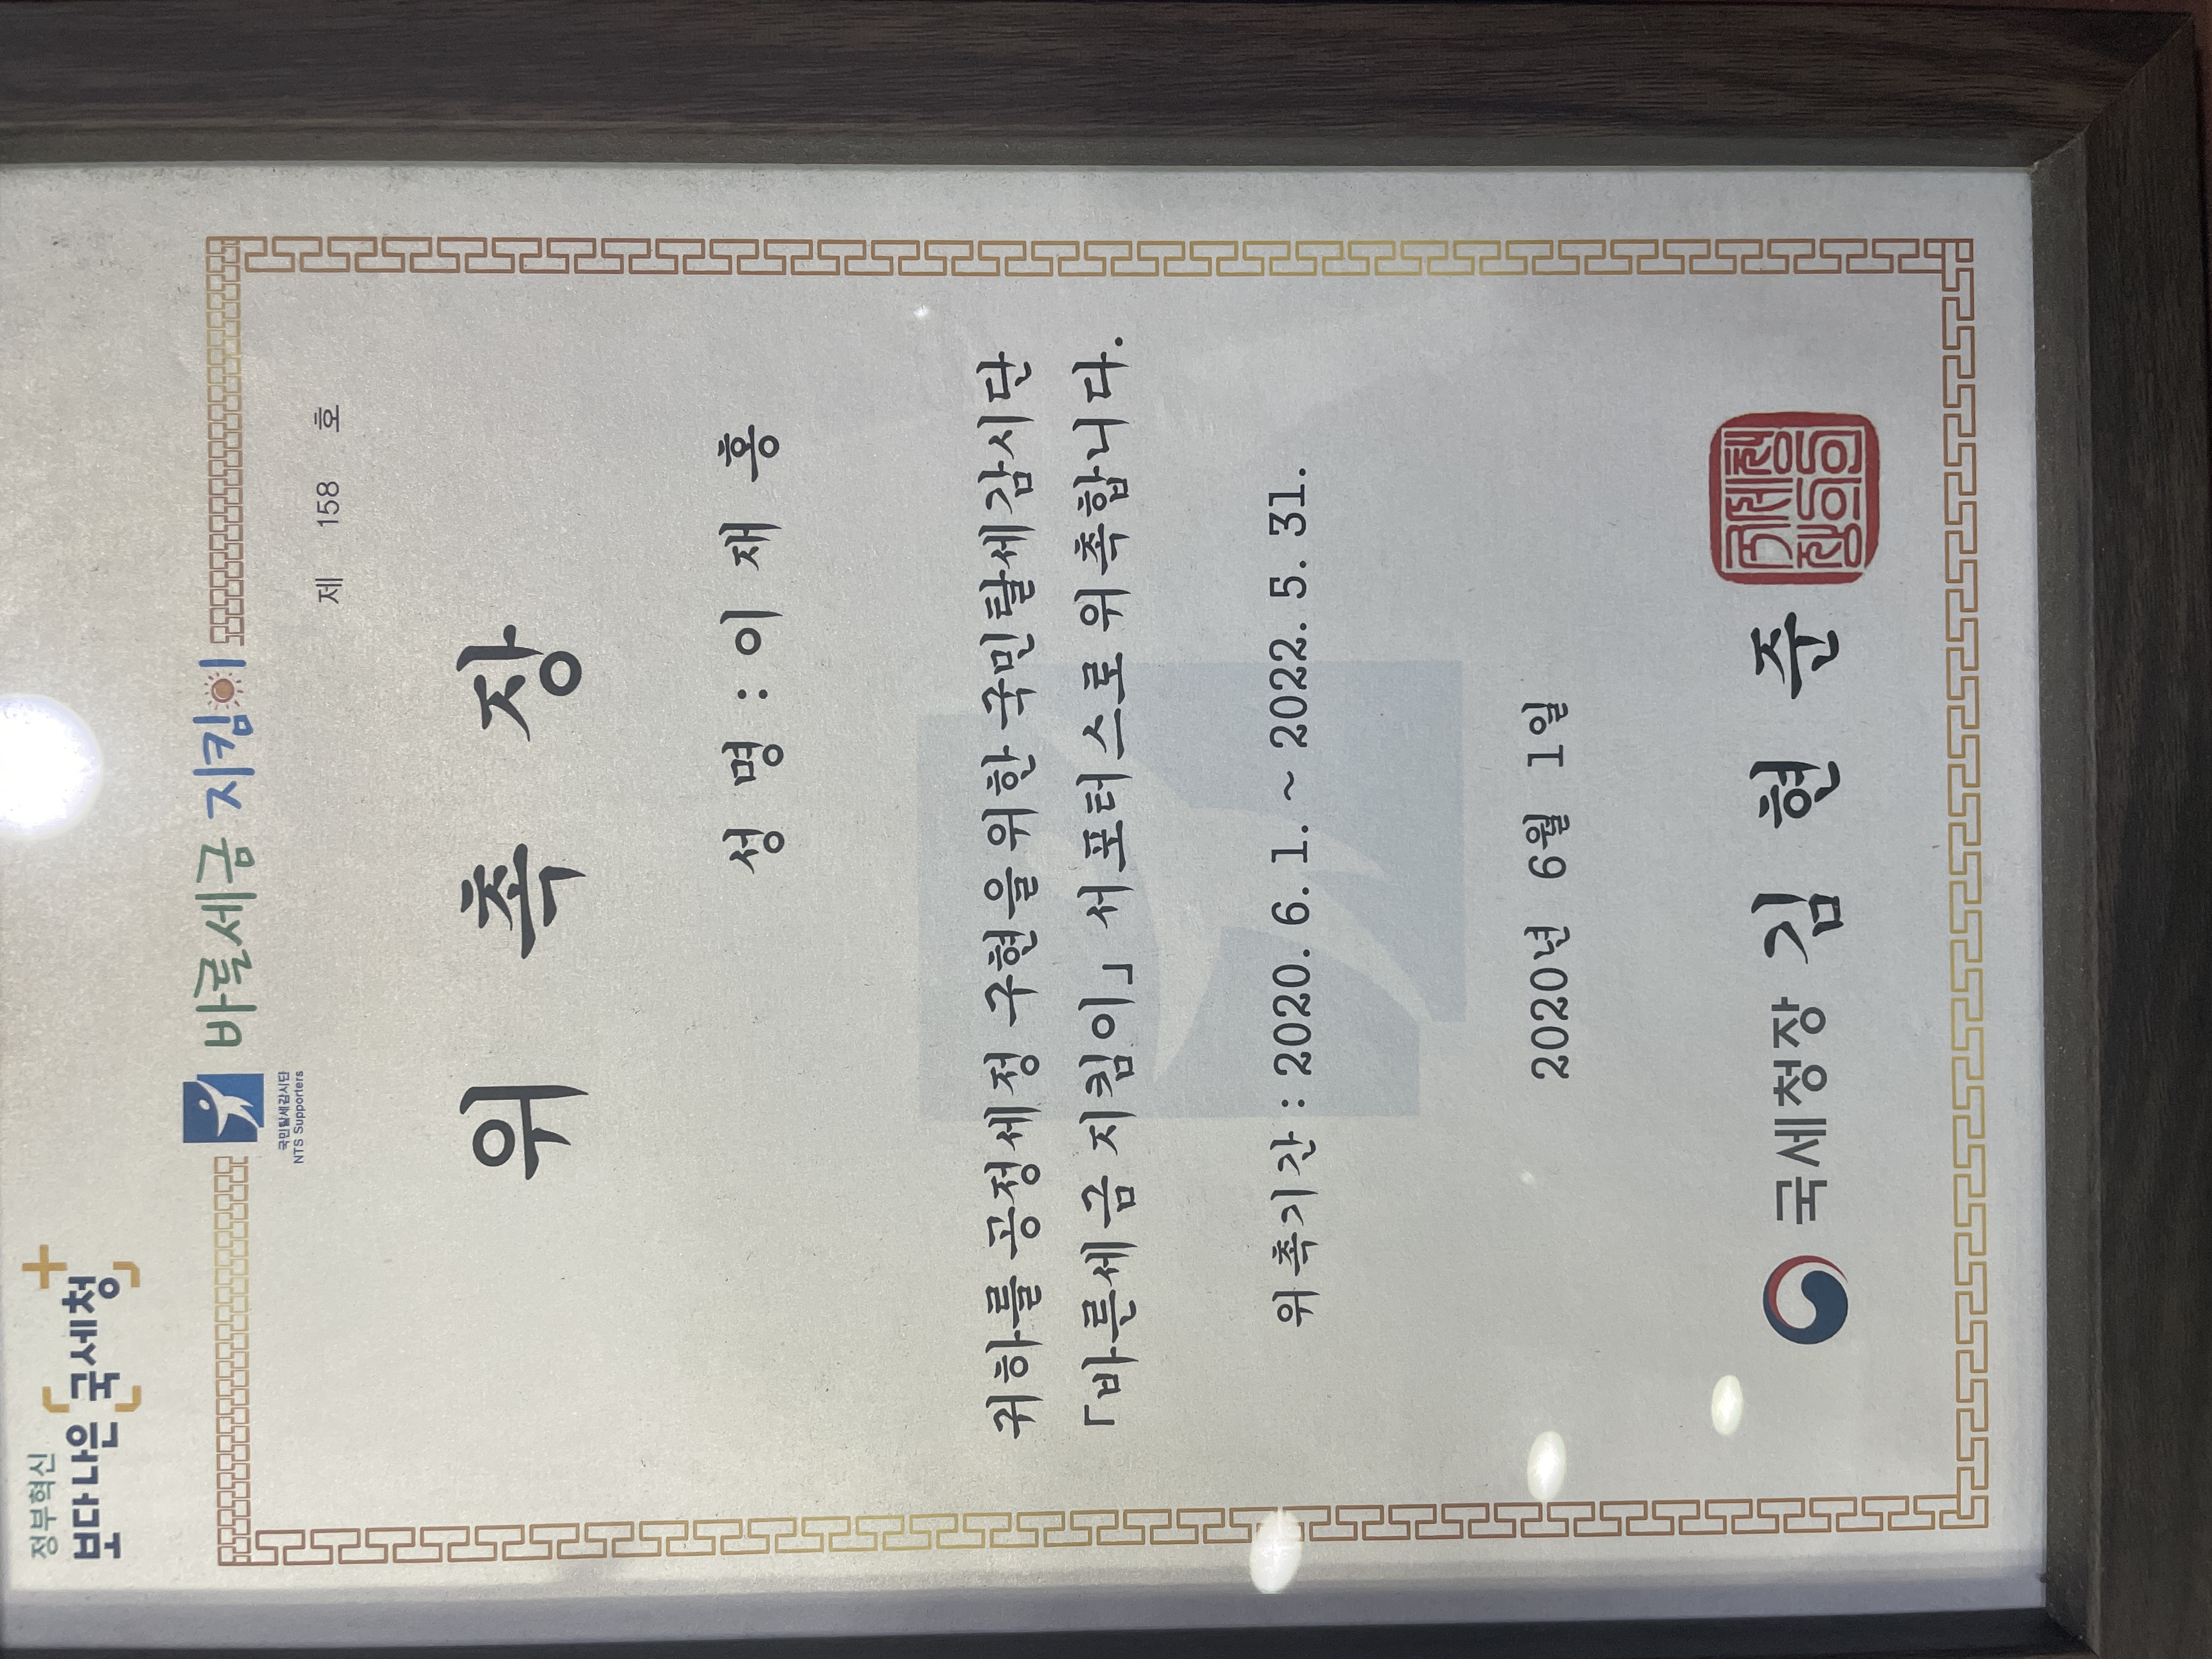 정부혁신
보다나은 국세청
국민탈세감시단
NTS Supporters
바른세금 지킴이
제 158 호
위 촉 장
성 명 : 이 재 홍
귀하를 공정세정 구현을 위한 국민탈세감시단
「바른세금 지킴이」 서포터스로 위촉합니다.
위촉기간 : 2020. 6. 1. ~ 2022. 5. 31.
2020년 6월 1일
국세청장 김 현 준
국세청
장의인